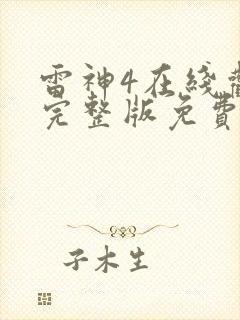 雷神4在线觀
完整版免費
子木生